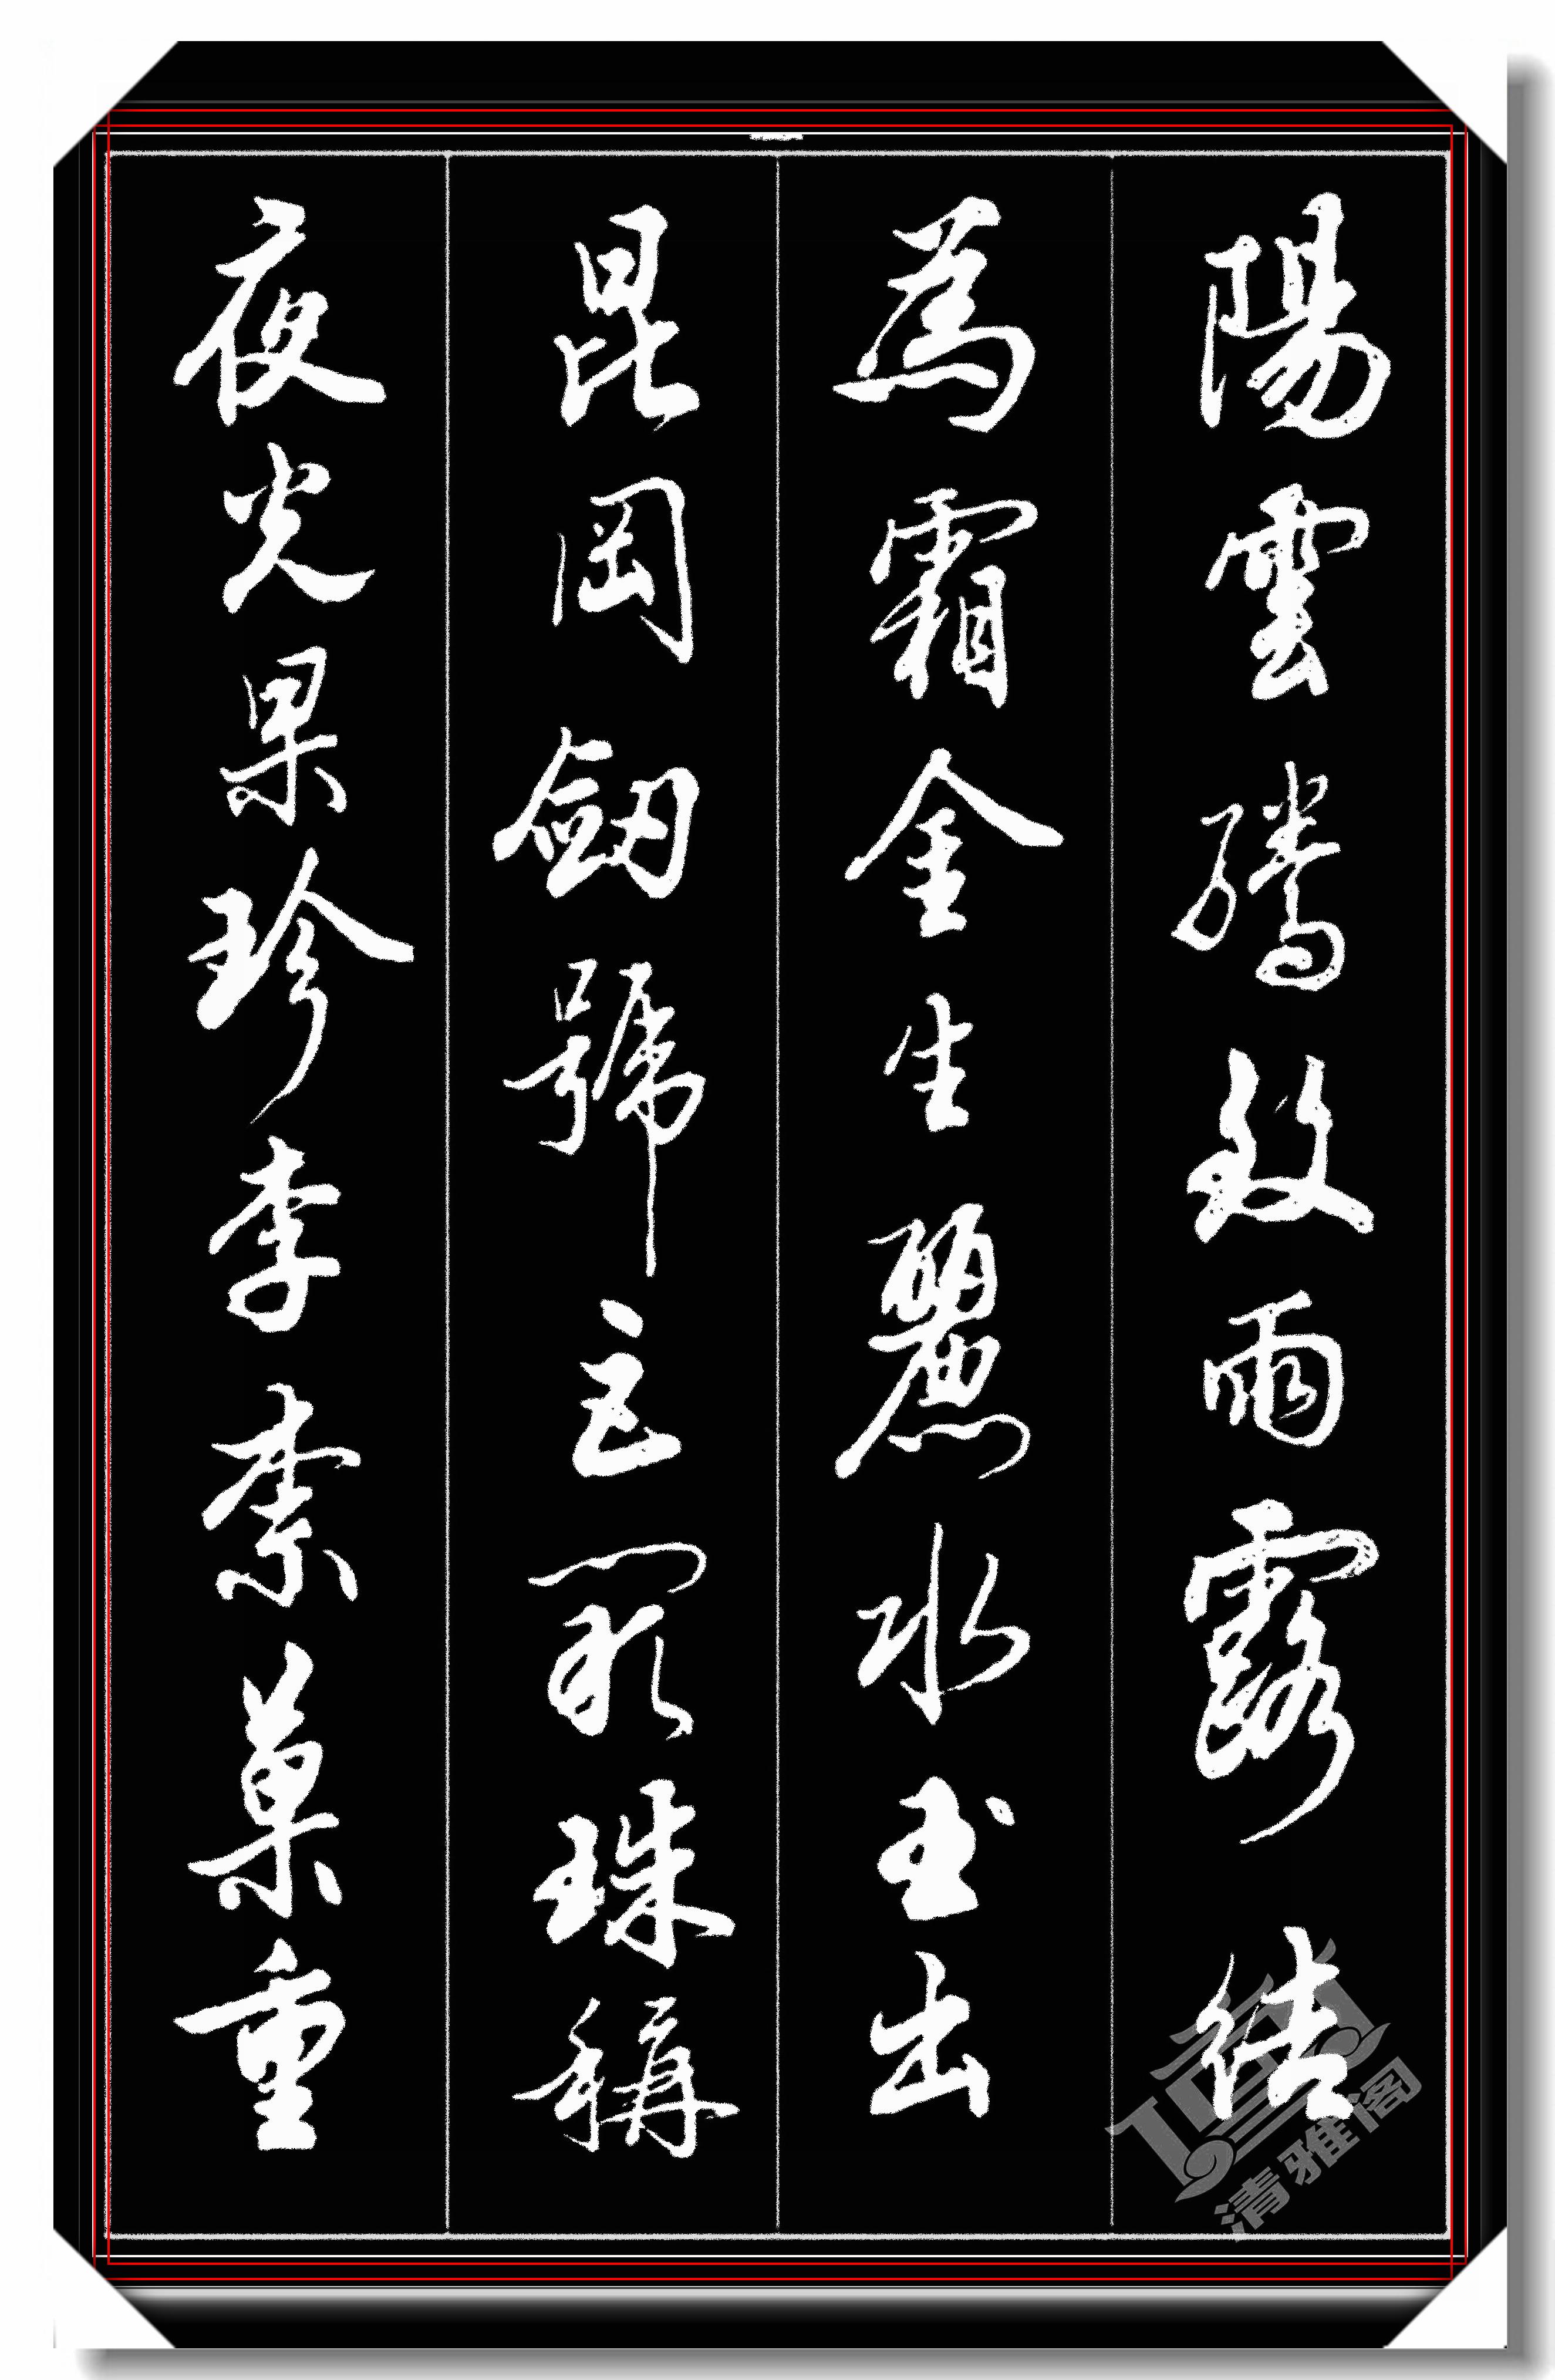 陽雲騰致雨露結
為霜金生麗水玉出
昆岡劔號巨闕珠稱
夜光果珍李柰菓重
清雅阁